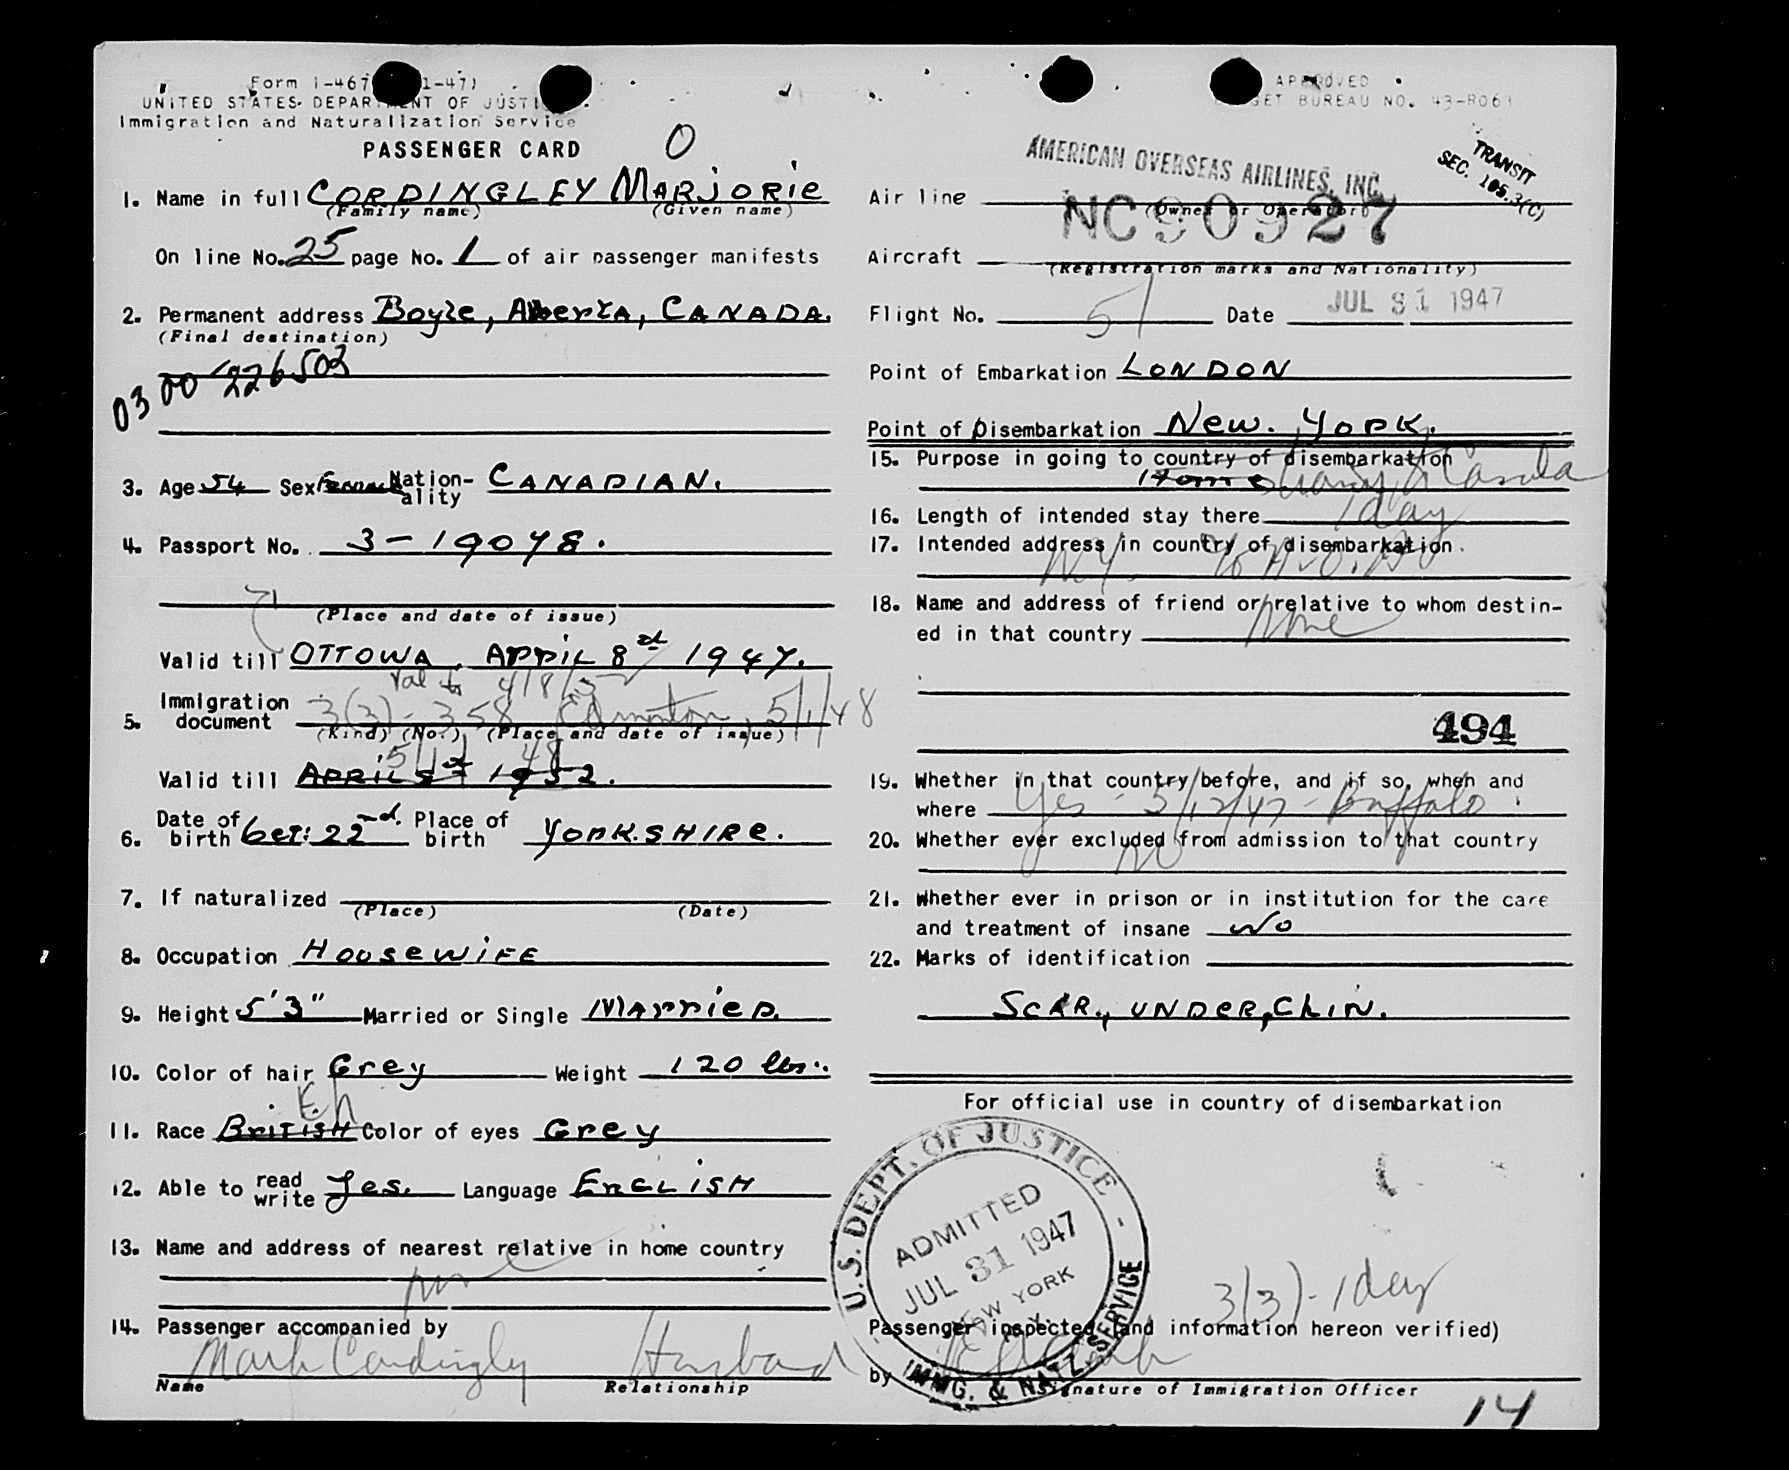 Form I-467 (1-47)
UNITED STATES DEPARTMENT OF JUSTICE
Immigration and Naturalization Service
PASSENGER CARD
O
1. Name in full CORDINGLEY MARJORIE
(Family name) (Given name)
On line No. 25 page No. 1 of air passenger manifests
2. Permanent address Boyle, Alberta, CANADA.
(Final destination)
0300 226503
3. Age 54 Sex Female Nation-ality CANADIAN.
4. Passport No. 3-19078.
(Place and date of issue)
Valid till OTTOWA, APRIL 8th 1947.
Val to 4/8/52
5. Immigration document 3(3)-358 Edmonton, 5/1/48
(Kind) (No.) (Place and date of issue)
5/1/48
Valid till APRIL 8th 1952.
6. Date of birth Oct: 22nd. Place of birth YORKSHIRE.
7. If naturalized
(Place) (Date)
8. Occupation HOUSEWIFE
9. Height 5'3" Married or Single MARRIED.
10. Color of hair Grey Weight 120 lbs.
11. Race BRITISH Color of eyes Grey
12. Able to read write Yes. Language ENGLISH
13. Name and address of nearest relative in home country
none
14. Passenger accompanied by
Mark Cordingly Husband
Name Relationship
APPROVED
BUDGET BUREAU NO. 43-R063
AMERICAN OVERSEAS AIRLINES, INC.
TRANSIT
SEC. 105.3(C)
Air line
(Owner or Operator)
NC90927
Aircraft
(Registration marks and Nationality)
Flight No. 51 Date JUL 31 1947
Point of Embarkation LONDON
Point of Disembarkation New. YORK.
15. Purpose in going to country of disembarkation
Home Transit to Canada
16. Length of intended stay there 1 day
17. Intended address in country of disembarkation.
N.Y. % A.O.A.
18. Name and address of friend or relative to whom destin-
ed in that country None
494
19. Whether in that country before, and if so, when and
where Yes - 3/12/47 - Buffalo
20. Whether ever excluded from admission to that country
No
21. Whether ever in prison or in institution for the care
and treatment of insane No
22. Marks of identification
SCAR., UNDER, CHIN.
For official use in country of disembarkation
U.S. DEPT. OF JUSTICE
ADMITTED
JUL 31 1947
NEW YORK
IMMG. & NATZ. SERVICE
3(3)-1 day
Passenger inspected (and information hereon verified)
by
Signature of Immigration Officer
14